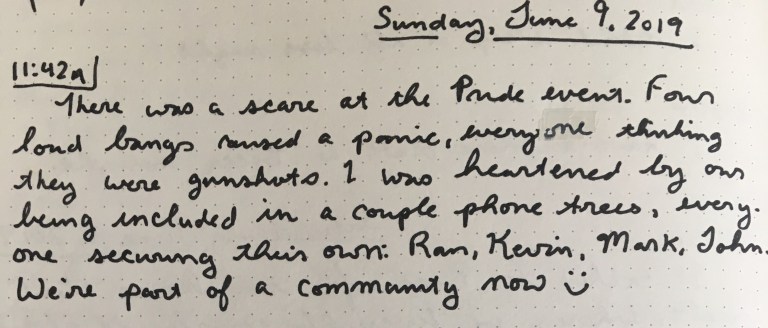 Sunday, June 9, 2019
11:42A
There was a scare at the Pride event. Four
loud bangs caused a panic, everyone thinking
they were gunshots. I was heartened by our
being included in a couple phone trees, every-
one securing their own: Ran, Kevin, Mark, John.
We're part of a community now :)